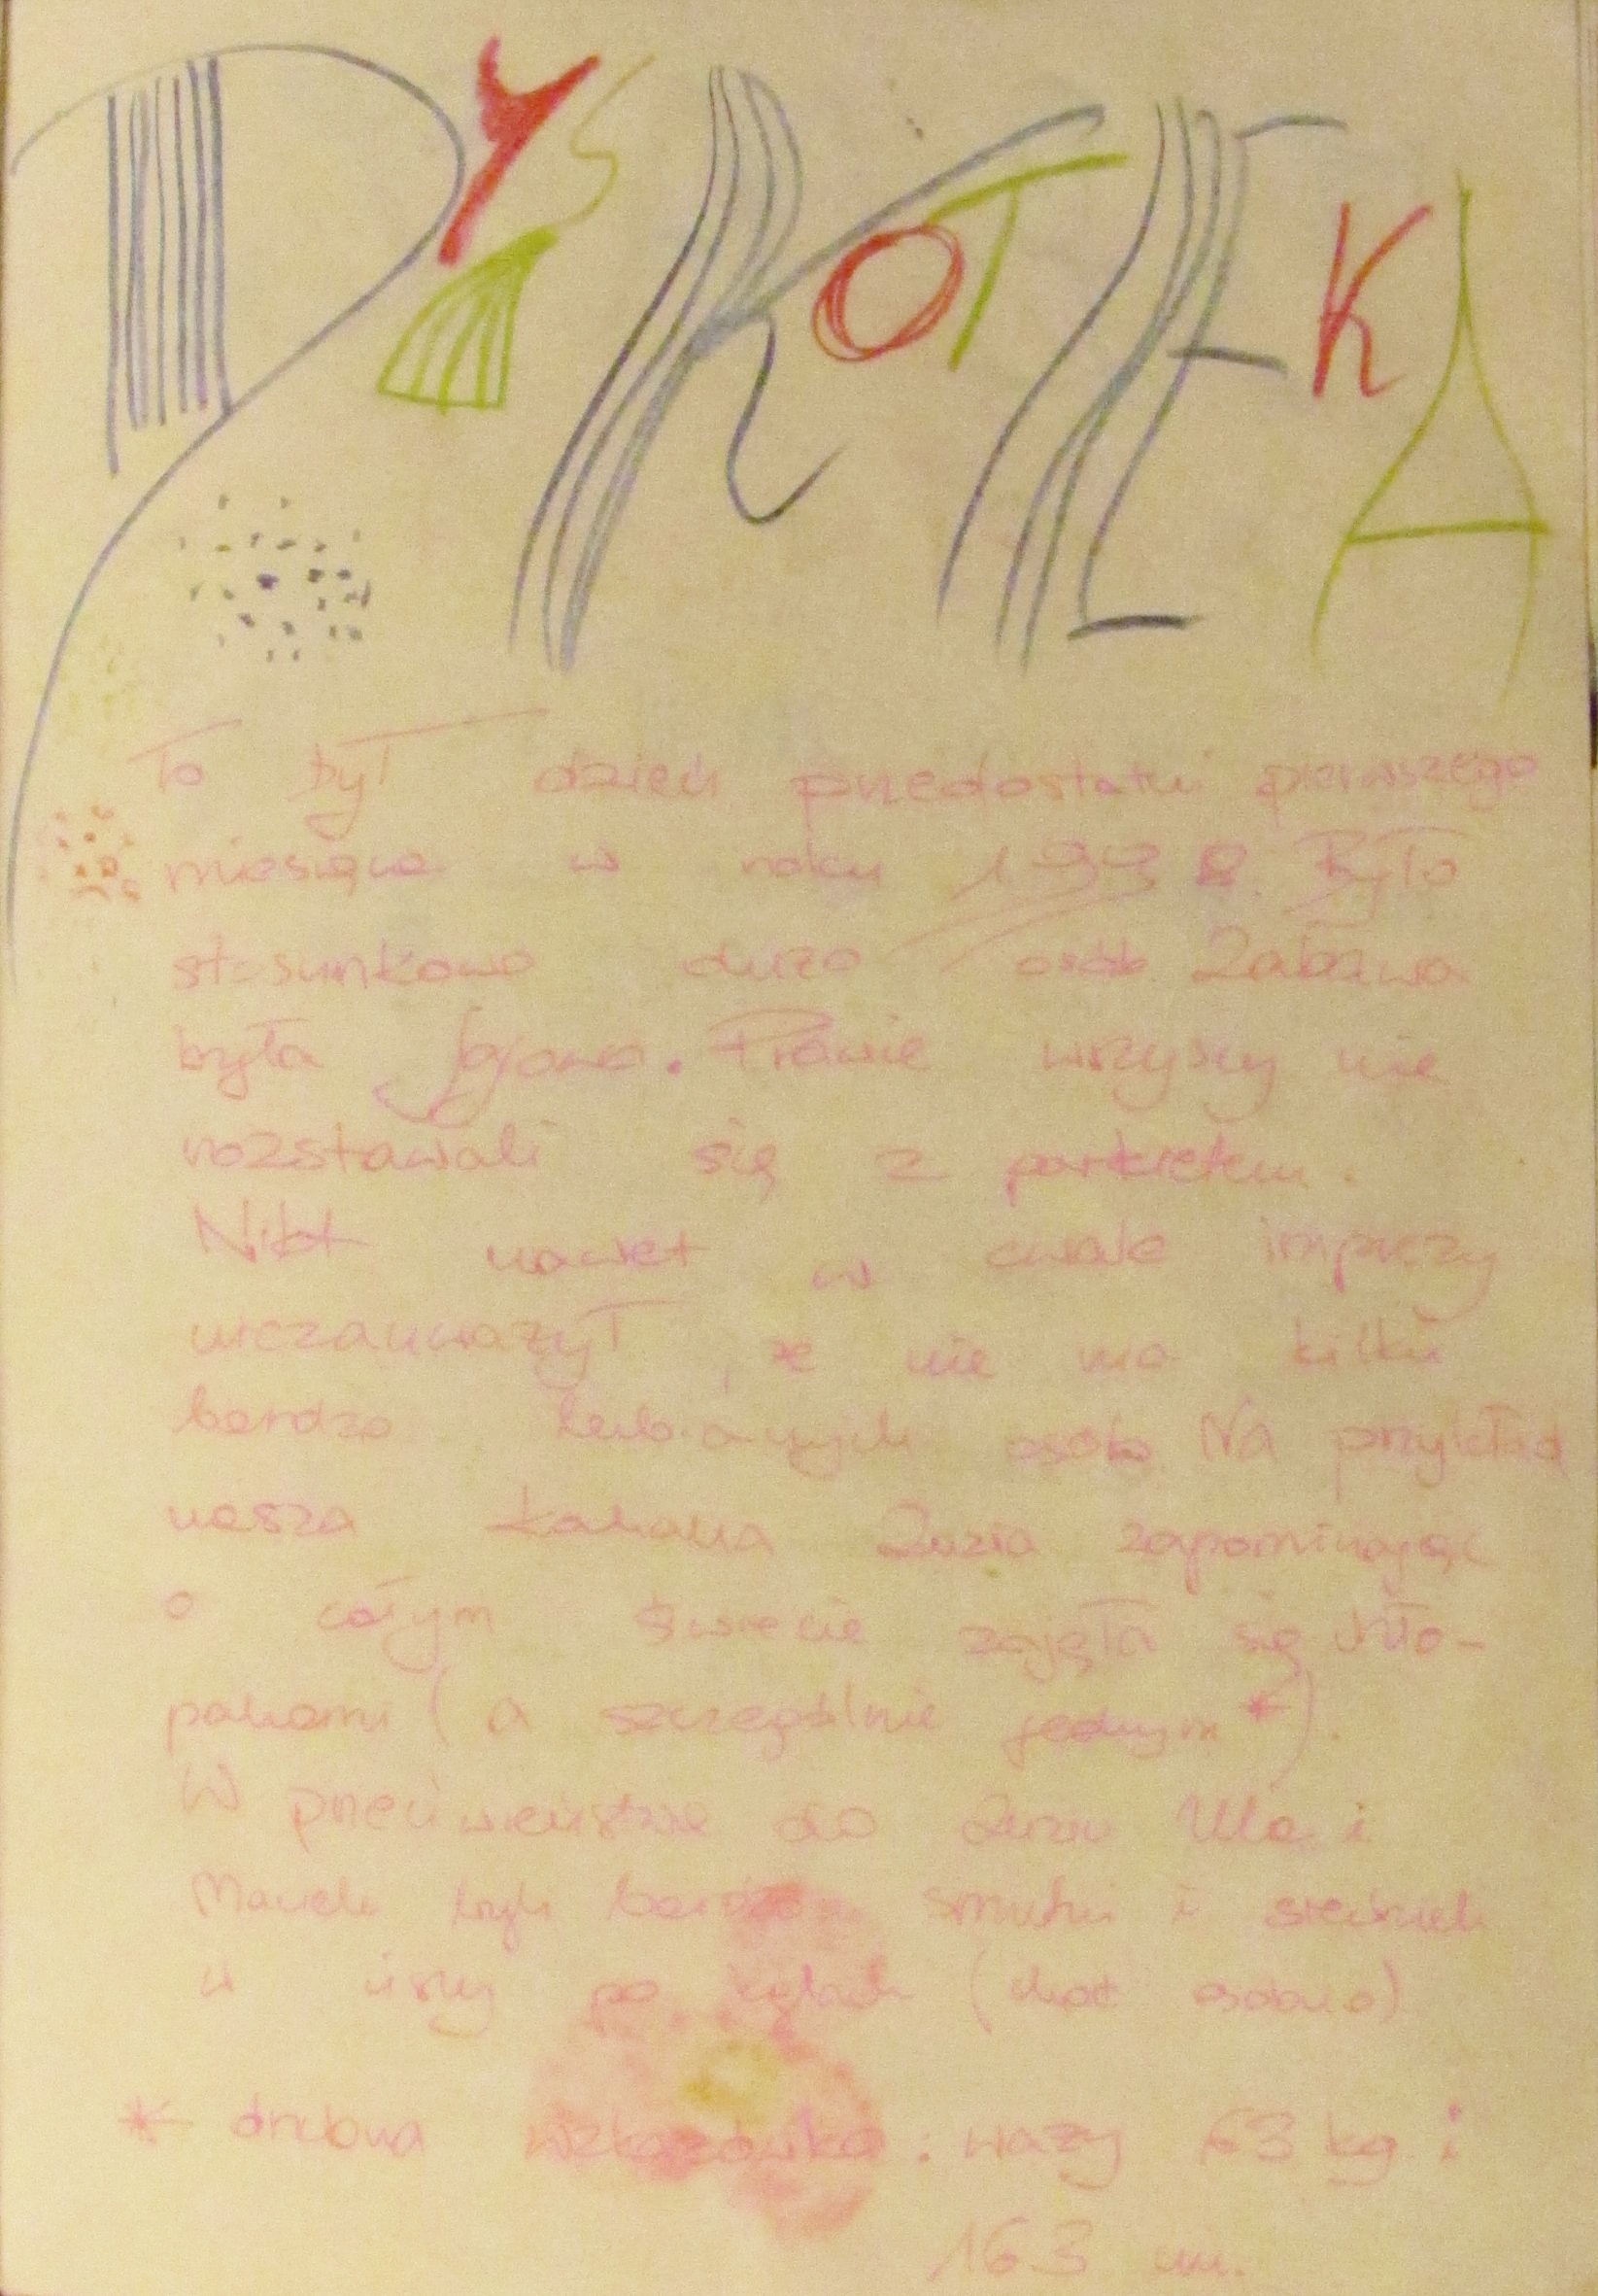 DYSKOTEKA
To był dzień przedostatni pierwszego
miesiąca w roku 1998. Było
stosunkowo dużo osób. Zabawa
była fajowa. Prawie wszyscy nie
rozstawali się z parkietem.
Nikt nawet w cwale imprezy
niezauważył, że nie ma kilku
bardzo lubianych osób. Na przykład
nasza kochana Zuzia zapominając
o całym świecie zajęła się chło-
pakami (a szczególnie jednym*).
W przeciwieństwie do Zuzi Ula i
Maciek byli bardzo smutni i siedzieli
w ciszy po kątach (choć osobno)
* drobna wskazówka: waży 63 kg i
163 cm.